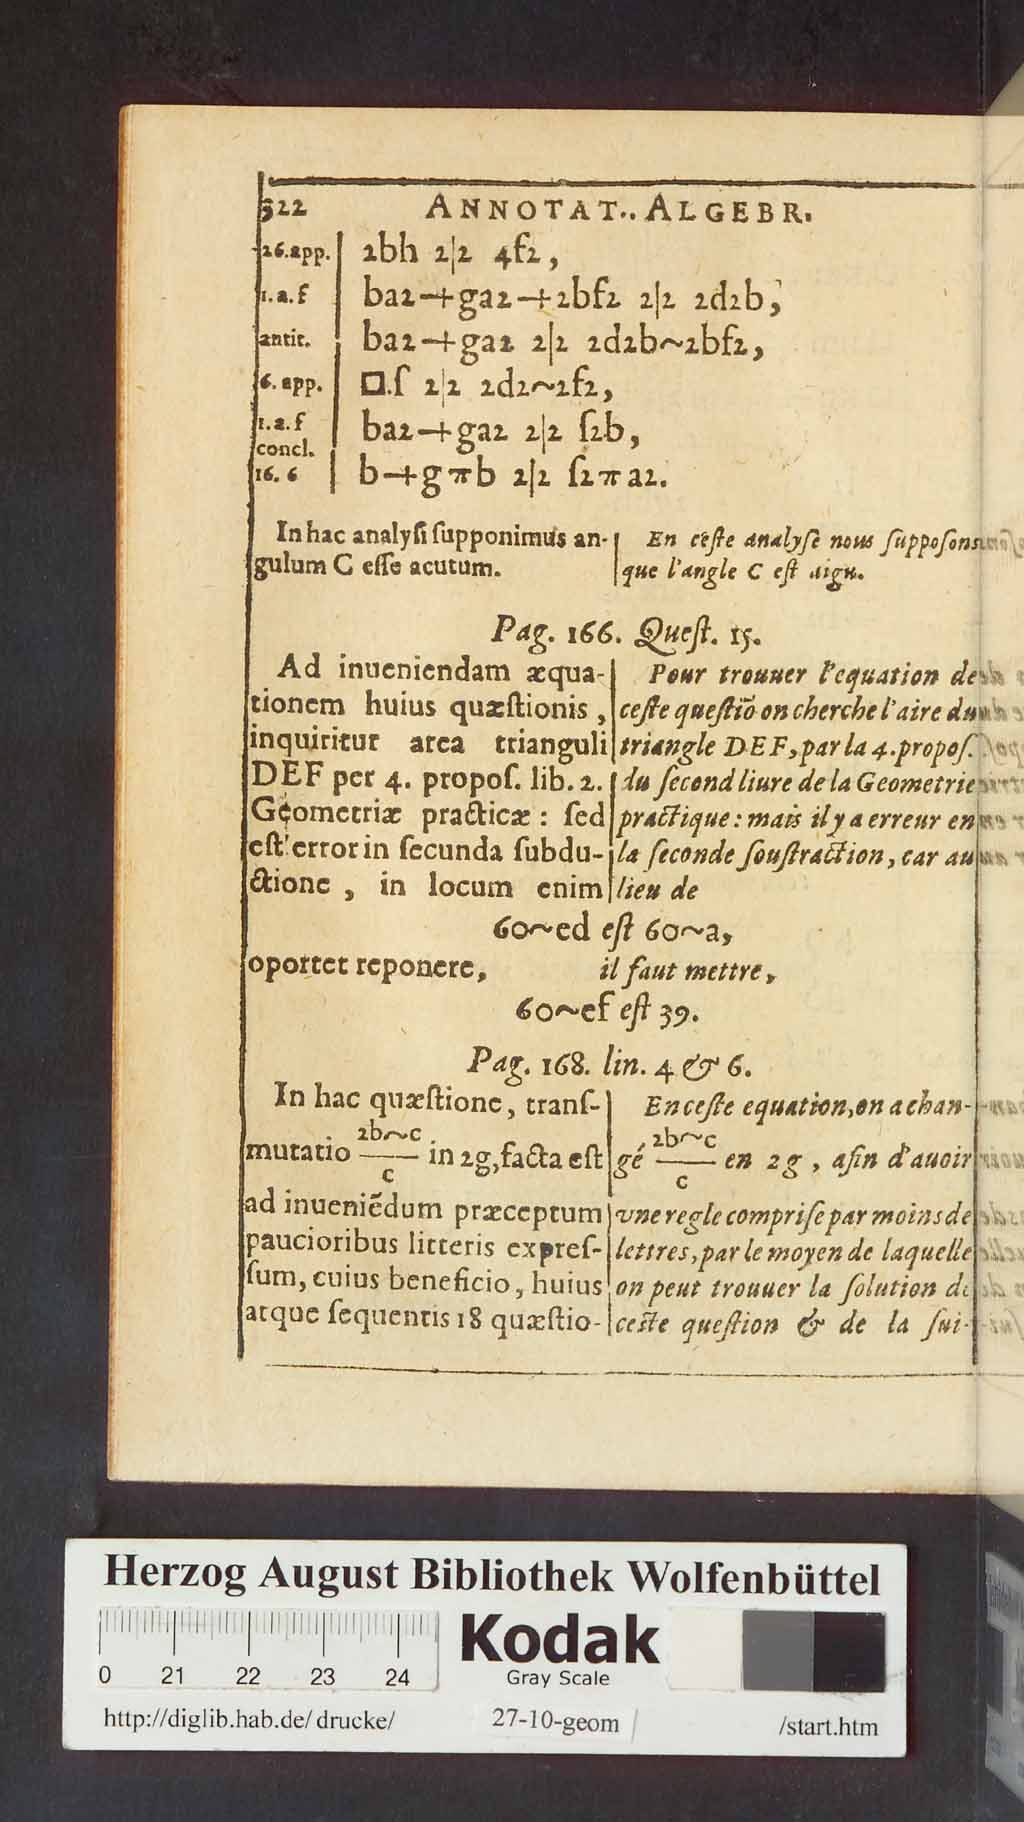 322 ANNOTAT.. ALGEBR.
26.app. 2bh 2|2 4f2,
1.a.f ba2-+ga2-+2bf2 2|2 2d2b,
antit. ba2-+ga2 2|2 2d2b~2bf2,
6. app. □.ſ 2|2 2d2~2f2,
1.a.f ba2-+ga2 2|2 ſ2b,
concl.
16. 6 b-+g π b 2|2 ſ2 π a2.
In hac analyſi ſupponimus an-
gulum C eſſe acutum.
En ceſte analyſe nous ſuppoſons
que l'angle C eſt aigu.
Pag. 166. Queſt. 15.
Ad inueniendam æqua-
tionem huius quæſtionis,
inquiritur area trianguli
DEF per 4. propoſ. lib. 2.
Geometriæ practicæ: ſed
eſt error in ſecunda ſubdu-
ctione, in locum enim
Pour trouuer l'equation de
ceſte queſtiõ on cherche l'aire du
triangle DEF, par la 4. propoſ.
du ſecond liure de la Geometrie
practique: mais il y a erreur en
la ſeconde ſouſtraction, car au
lieu de
60~ed eſt 60~a,
oportet reponere, il faut mettre,
60~ef eſt 39.
Pag. 168. lin. 4 & 6.
In hac quæſtione, tranſ-
mutatio 2b~c/c in 2g, facta eſt
ad inueniẽdum præceptum
paucioribus litteris expreſ-
ſum, cuius beneficio, huius
atque ſequentis 18 quæſtio-
En ceſte equation, on a chan-
gé 2b~c/c en 2g, afin d'auoir
vne regle compriſe par moins de
lettres, par le moyen de laquelle
on peut trouuer la ſolution de
ceſte queſtion & de la ſui-
Herzog August Bibliothek Wolfenbüttel
0 21 22 23 24
Kodak
Gray Scale
http://diglib.hab.de/drucke/ 27-10-geom /start.htm